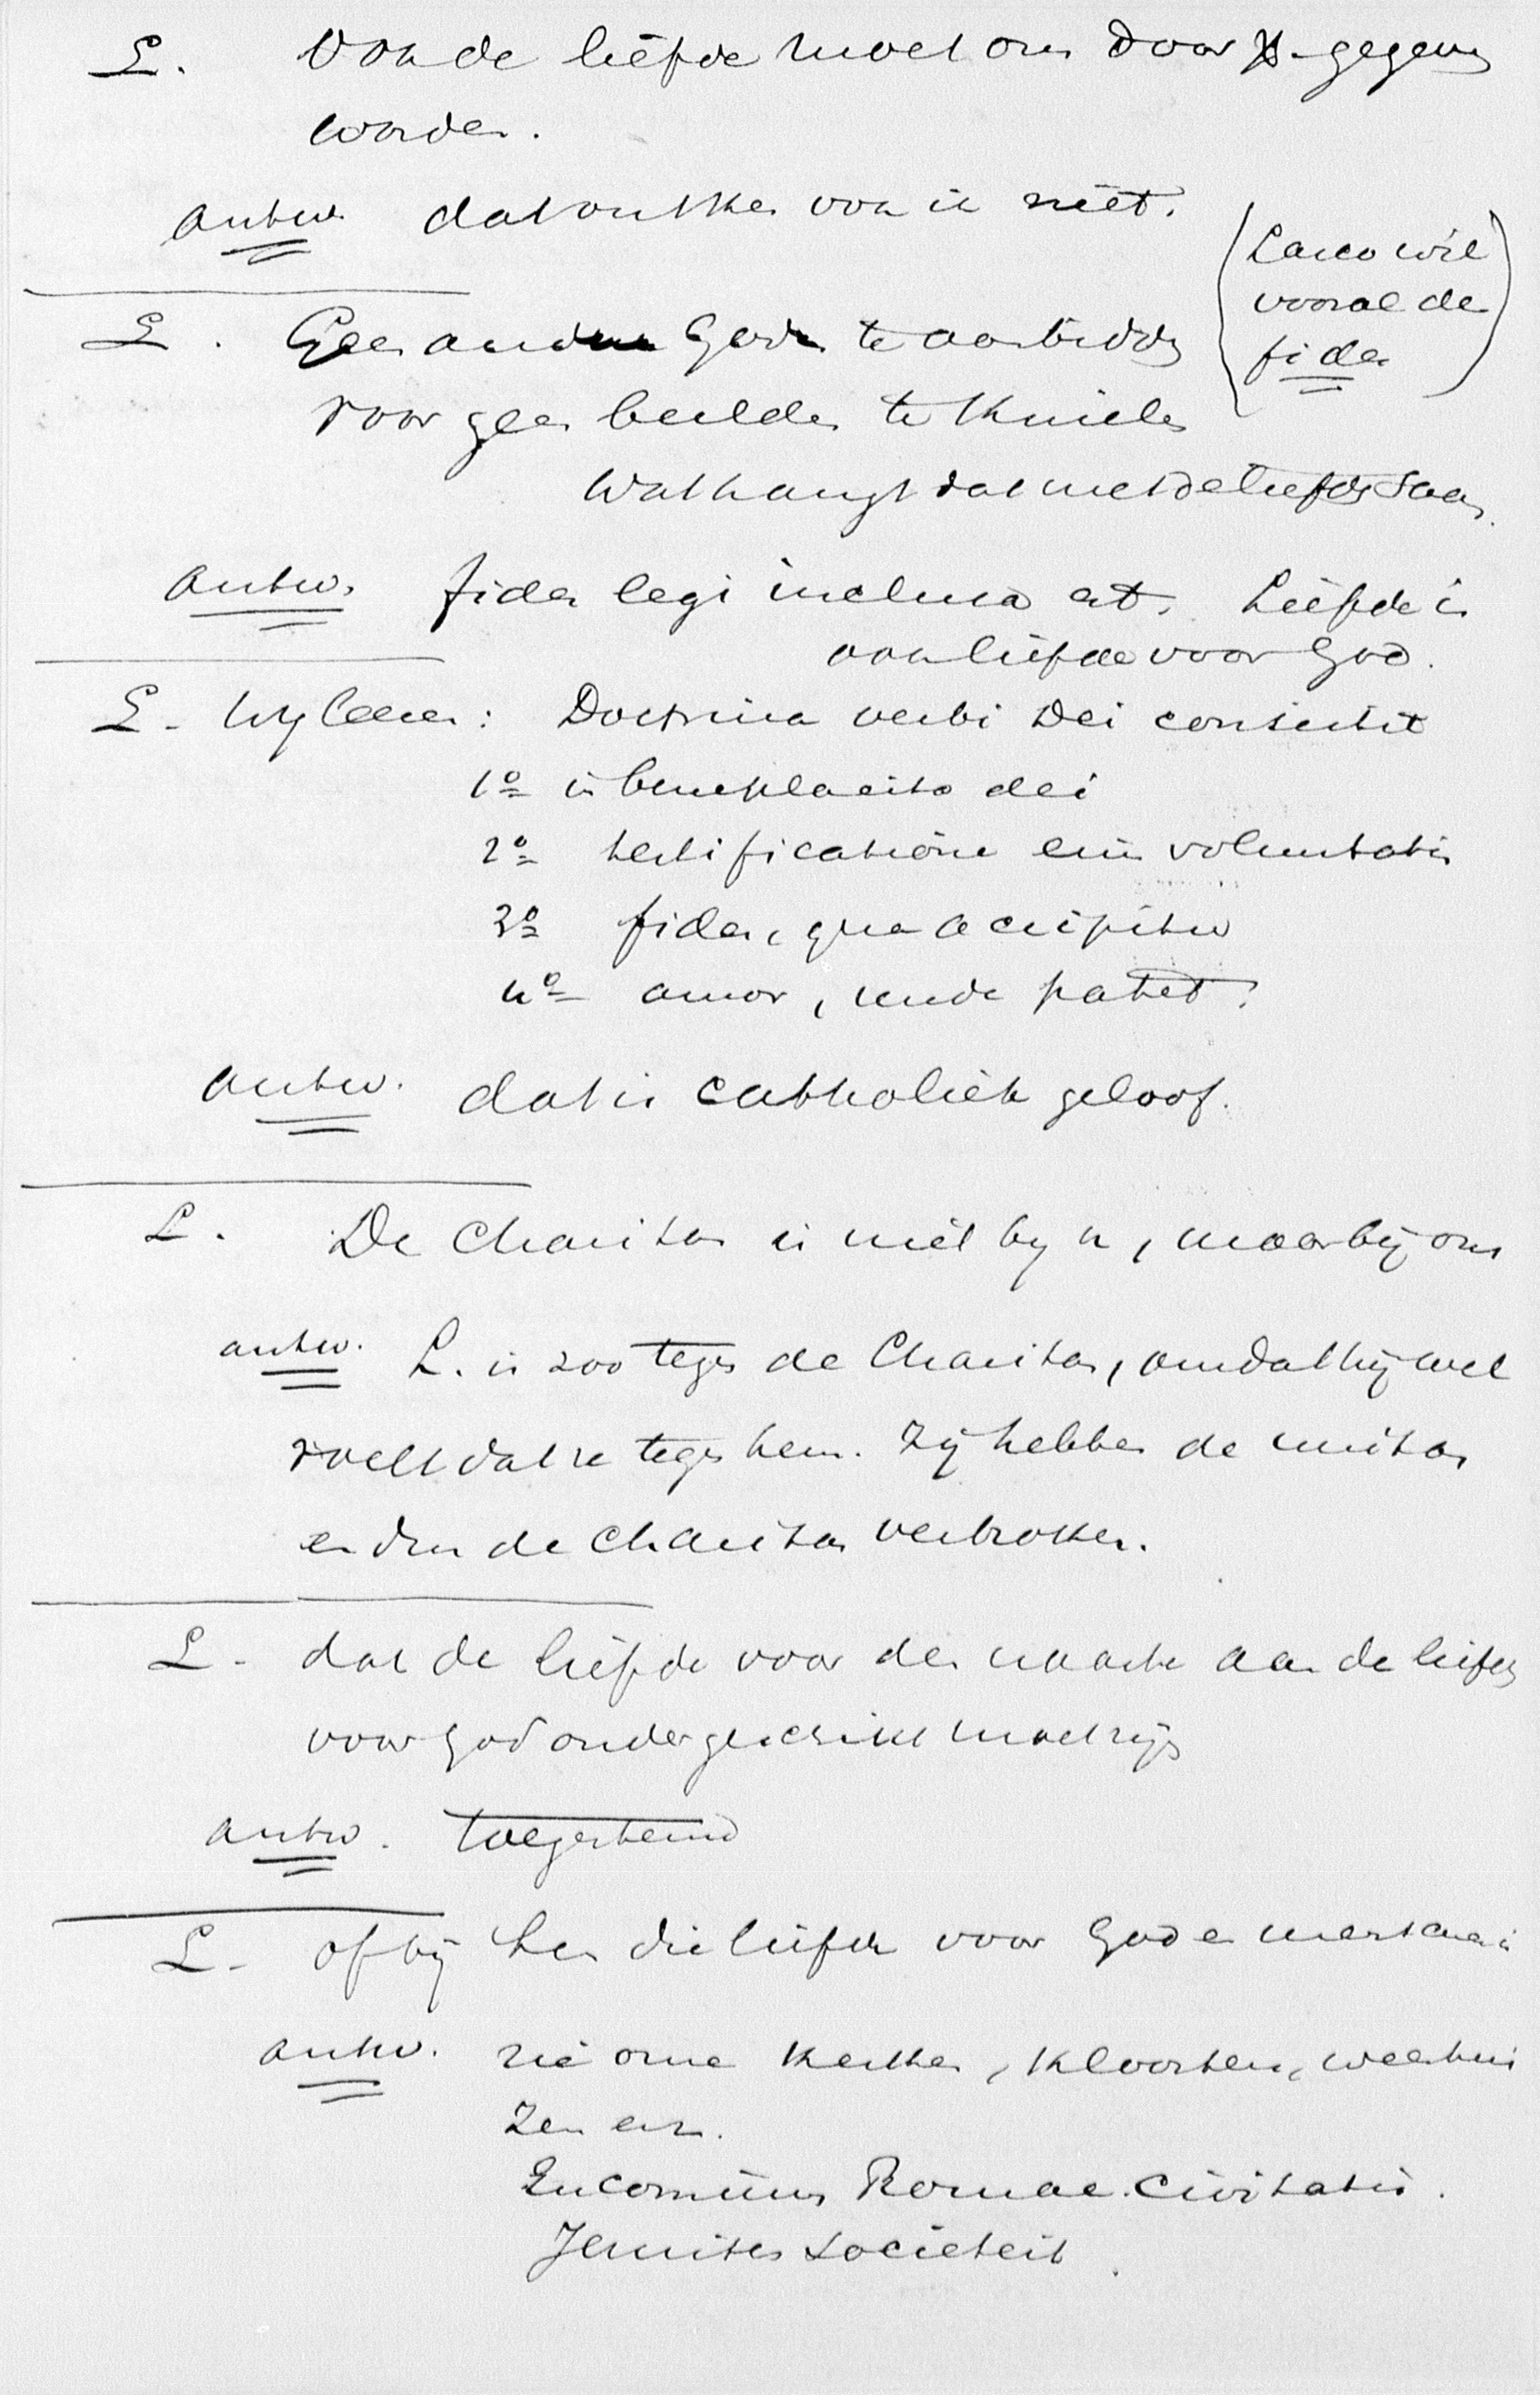 L. Ook de liefde moet ons door X gegeven
worden.
antw. dat ontken ook ik niet.
(Lasco wil
vooral de
fides)
L. Geen andere Goden te aanbidden
voor geen beelden te knielen
Wat hangt dat met de liefde saam.
antw. fides legi inclusa est. Liefde is
ook liefde voor God.
L. Wij leeren: Doctrina verbi Dei consistit
1o in beneplacito dei
2o testificatione eius voluntatis
3o fides, qua accipitur
4o amor, unde patet.
antw. dat is catholiek geloof.
L. De Charitas is niet by u, maar bij ons
antw. L. is zoo tegen de Charitas, omdat hij wel
voelt dat ze tegen hem. Zij hebben de unitas
en dus de Charitas verbroken.
L. dat de liefde voor den naaste aan de liefde
voor God ondergeschikt moet zijn
antw. toegestemd
L. of bij hen die liefde voor God en menschen is
antw. zie onze kerken, kloosters, weeshui
zen enz.
Encomium Romae Civitatis.
Jesuiten Societeit.